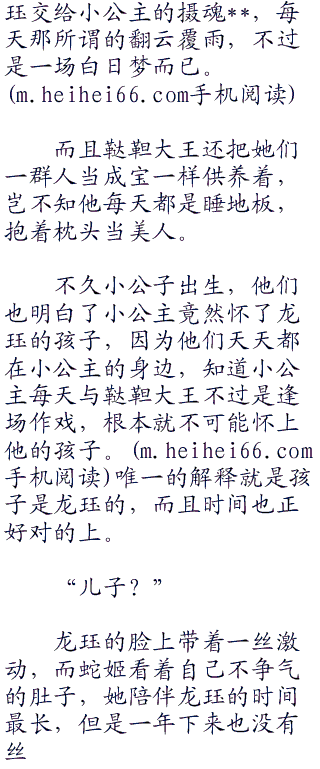 珏交给小公主的摄魂**，每
天那所谓的翻云覆雨，不过
是一场白日梦而已。
(m.heihei66.com手机阅读)
而且鞑靼大王还把她们
一群人当成宝一样供养着，
岂不知他每天都是睡地板，
抱着枕头当美人。
不久小公子出生，他们
也明白了小公主竟然怀了龙
珏的孩子，因为他们天天都
在小公主的身边，知道小公
主每天与鞑靼大王不过是逢
场作戏，根本就不可能怀上
他的孩子。(m.heihei66.com
手机阅读)唯一的解释就是孩
子是龙珏的，而且时间也正
好对的上。
“儿子？”
龙珏的脸上带着一丝激
动，而蛇姬看着自己不争气
的肚子，她陪伴龙珏的时间
最长，但是一年下来也没有
丝